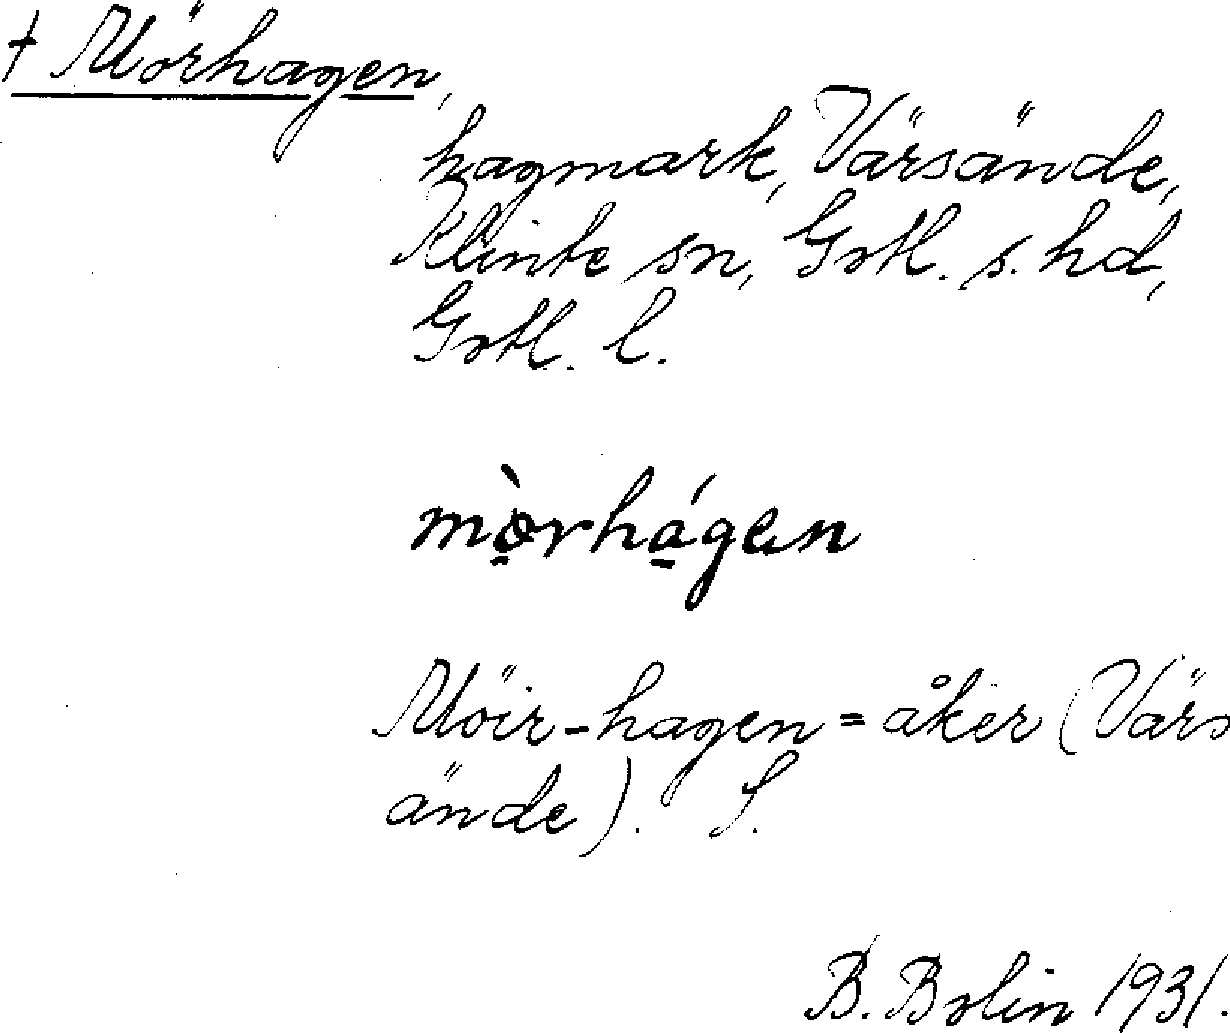 † Mörhagen,
hagmark, Värsände,
Klinte sn, Gotl. s. hd,
Gotl. l.
mòrhágen
Möir-hagen = åker (Värs
ände). S.
B. Bolin 1931.